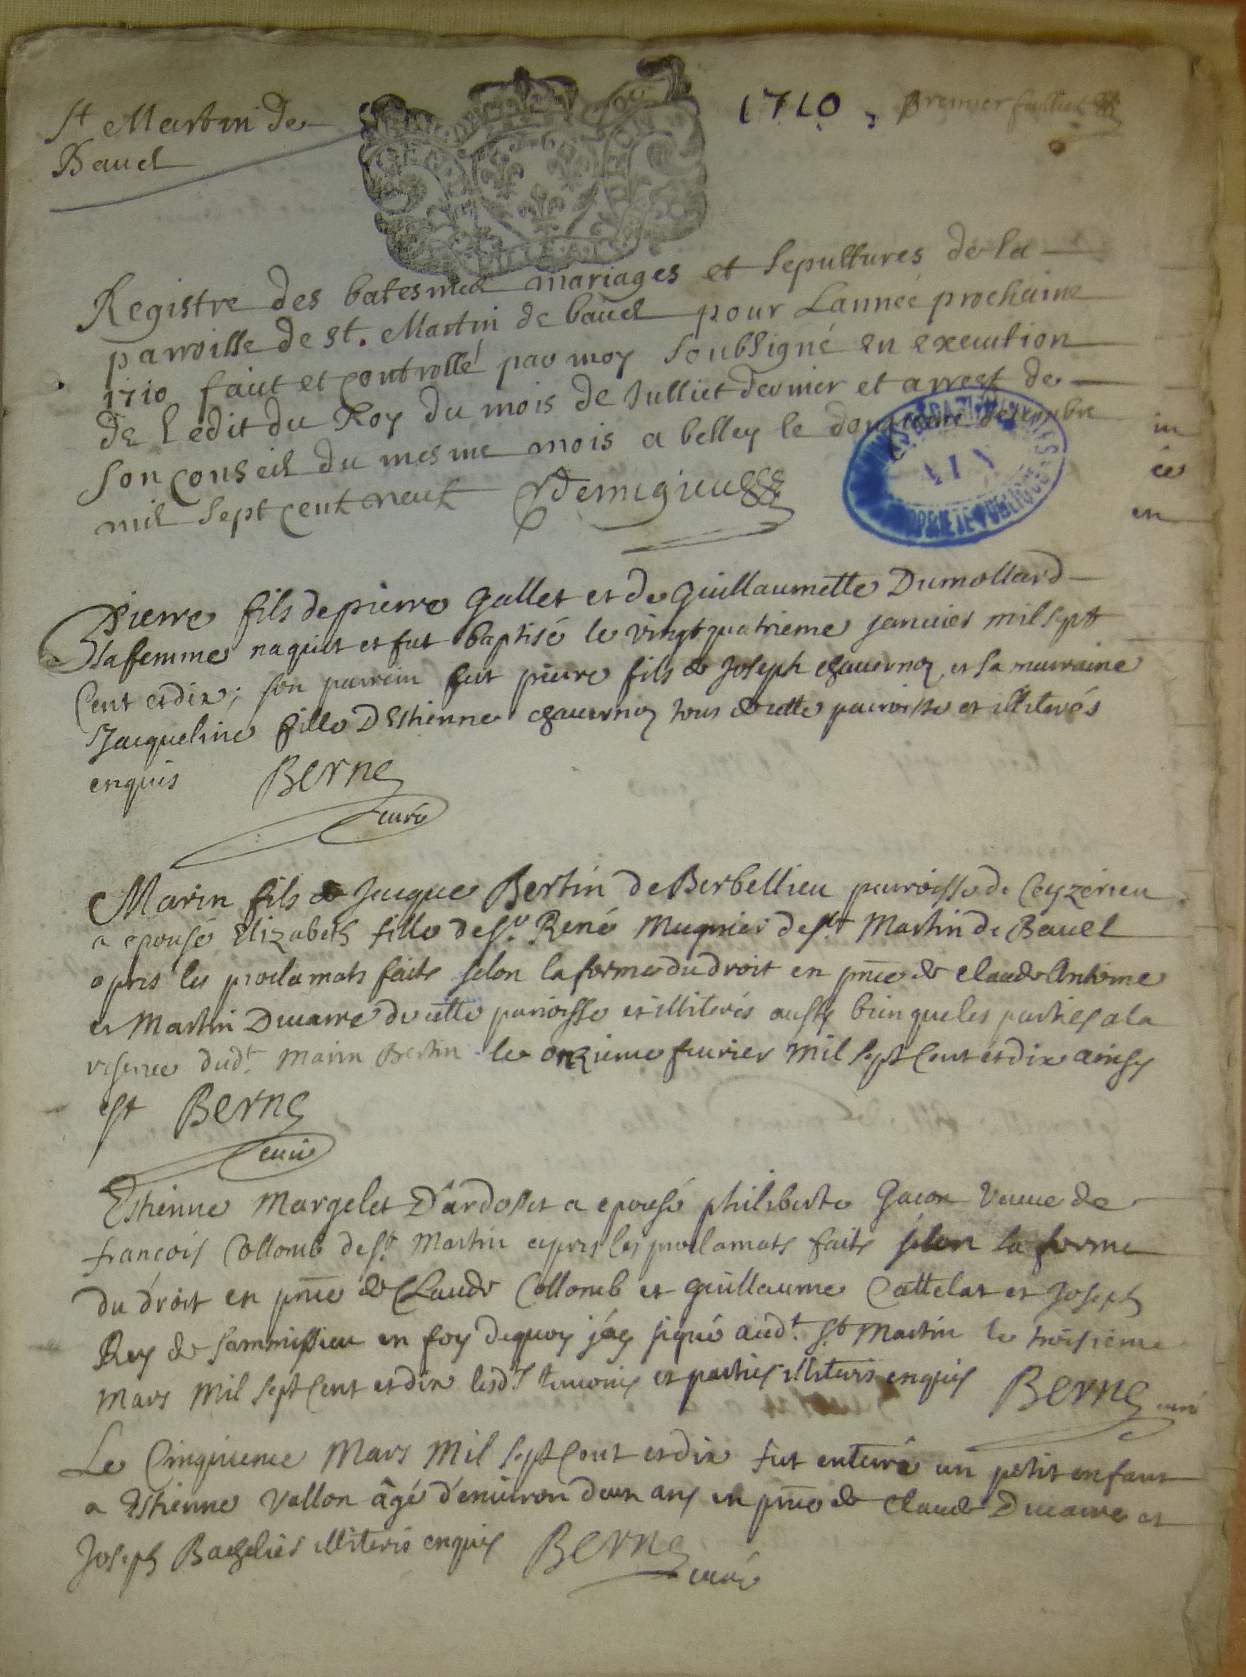 St Martin de
Bavel
1710, premier fulliet
Registre des batesmes mariages et sepultures de la
parroisse de st. Martin de bavel pour Lannee prochaine
1710 fait et controllé par moy soubsigné en execution
de l edit du Roy du mois de Julliet dernier et arrest de
son conseil du mesme mois a belley le douzieme decembre
mil sept cent neuf
Pierre fils de pierre Gallet et de Guillaumette Dumollard
sa femme naquit et fut baptisé le vingt quatrieme janvier mil sept
cent et dix; son parrein fut pierre fils de Joseph chavernoz et sa marraine
Jacqueline fille D Estienne chavernoz tous de cette parroisse et illiterés
enquis Berne
curé
Marin fils de Jacque Bertin de Berbellieu parroisse de Ceyzerieu
a epousé Elizabeth fille de sr. René Mugnier de st Martin de Bavel
apres les proclamats faits selon la forme du droit en pnce de Claude Antoine
et Martin Ducarre de cette parroisse et illiterés aussy bien que les parties a la
reserve dudt. Marin Bertin le onzieme fevrier mil sept cent et dix ainsy
est Berne
curé
Estienne Margelet D'ardosset a epousé philiberte Gacon veuve de
francois Collomb de st. Martin apres les proclamats faits selon la forme
du droit en pnce de Claude Collomb et Guillaume Cattelat et Joseph
Rey de sammissieu en foy dequoy j'ay signé audt. st Martin le troisieme
mars mil sept cent et dix lesdts temoins et parties illiterés enquis Berne curé
Le Cinquieme Mars mil sept cent et dix fut enterré un petit enfant
a Estienne Vallon âgé d'environ deux ans en pnce de Claude Ducarre et
Joseph Bachelier illiterés enquis Berne
curé